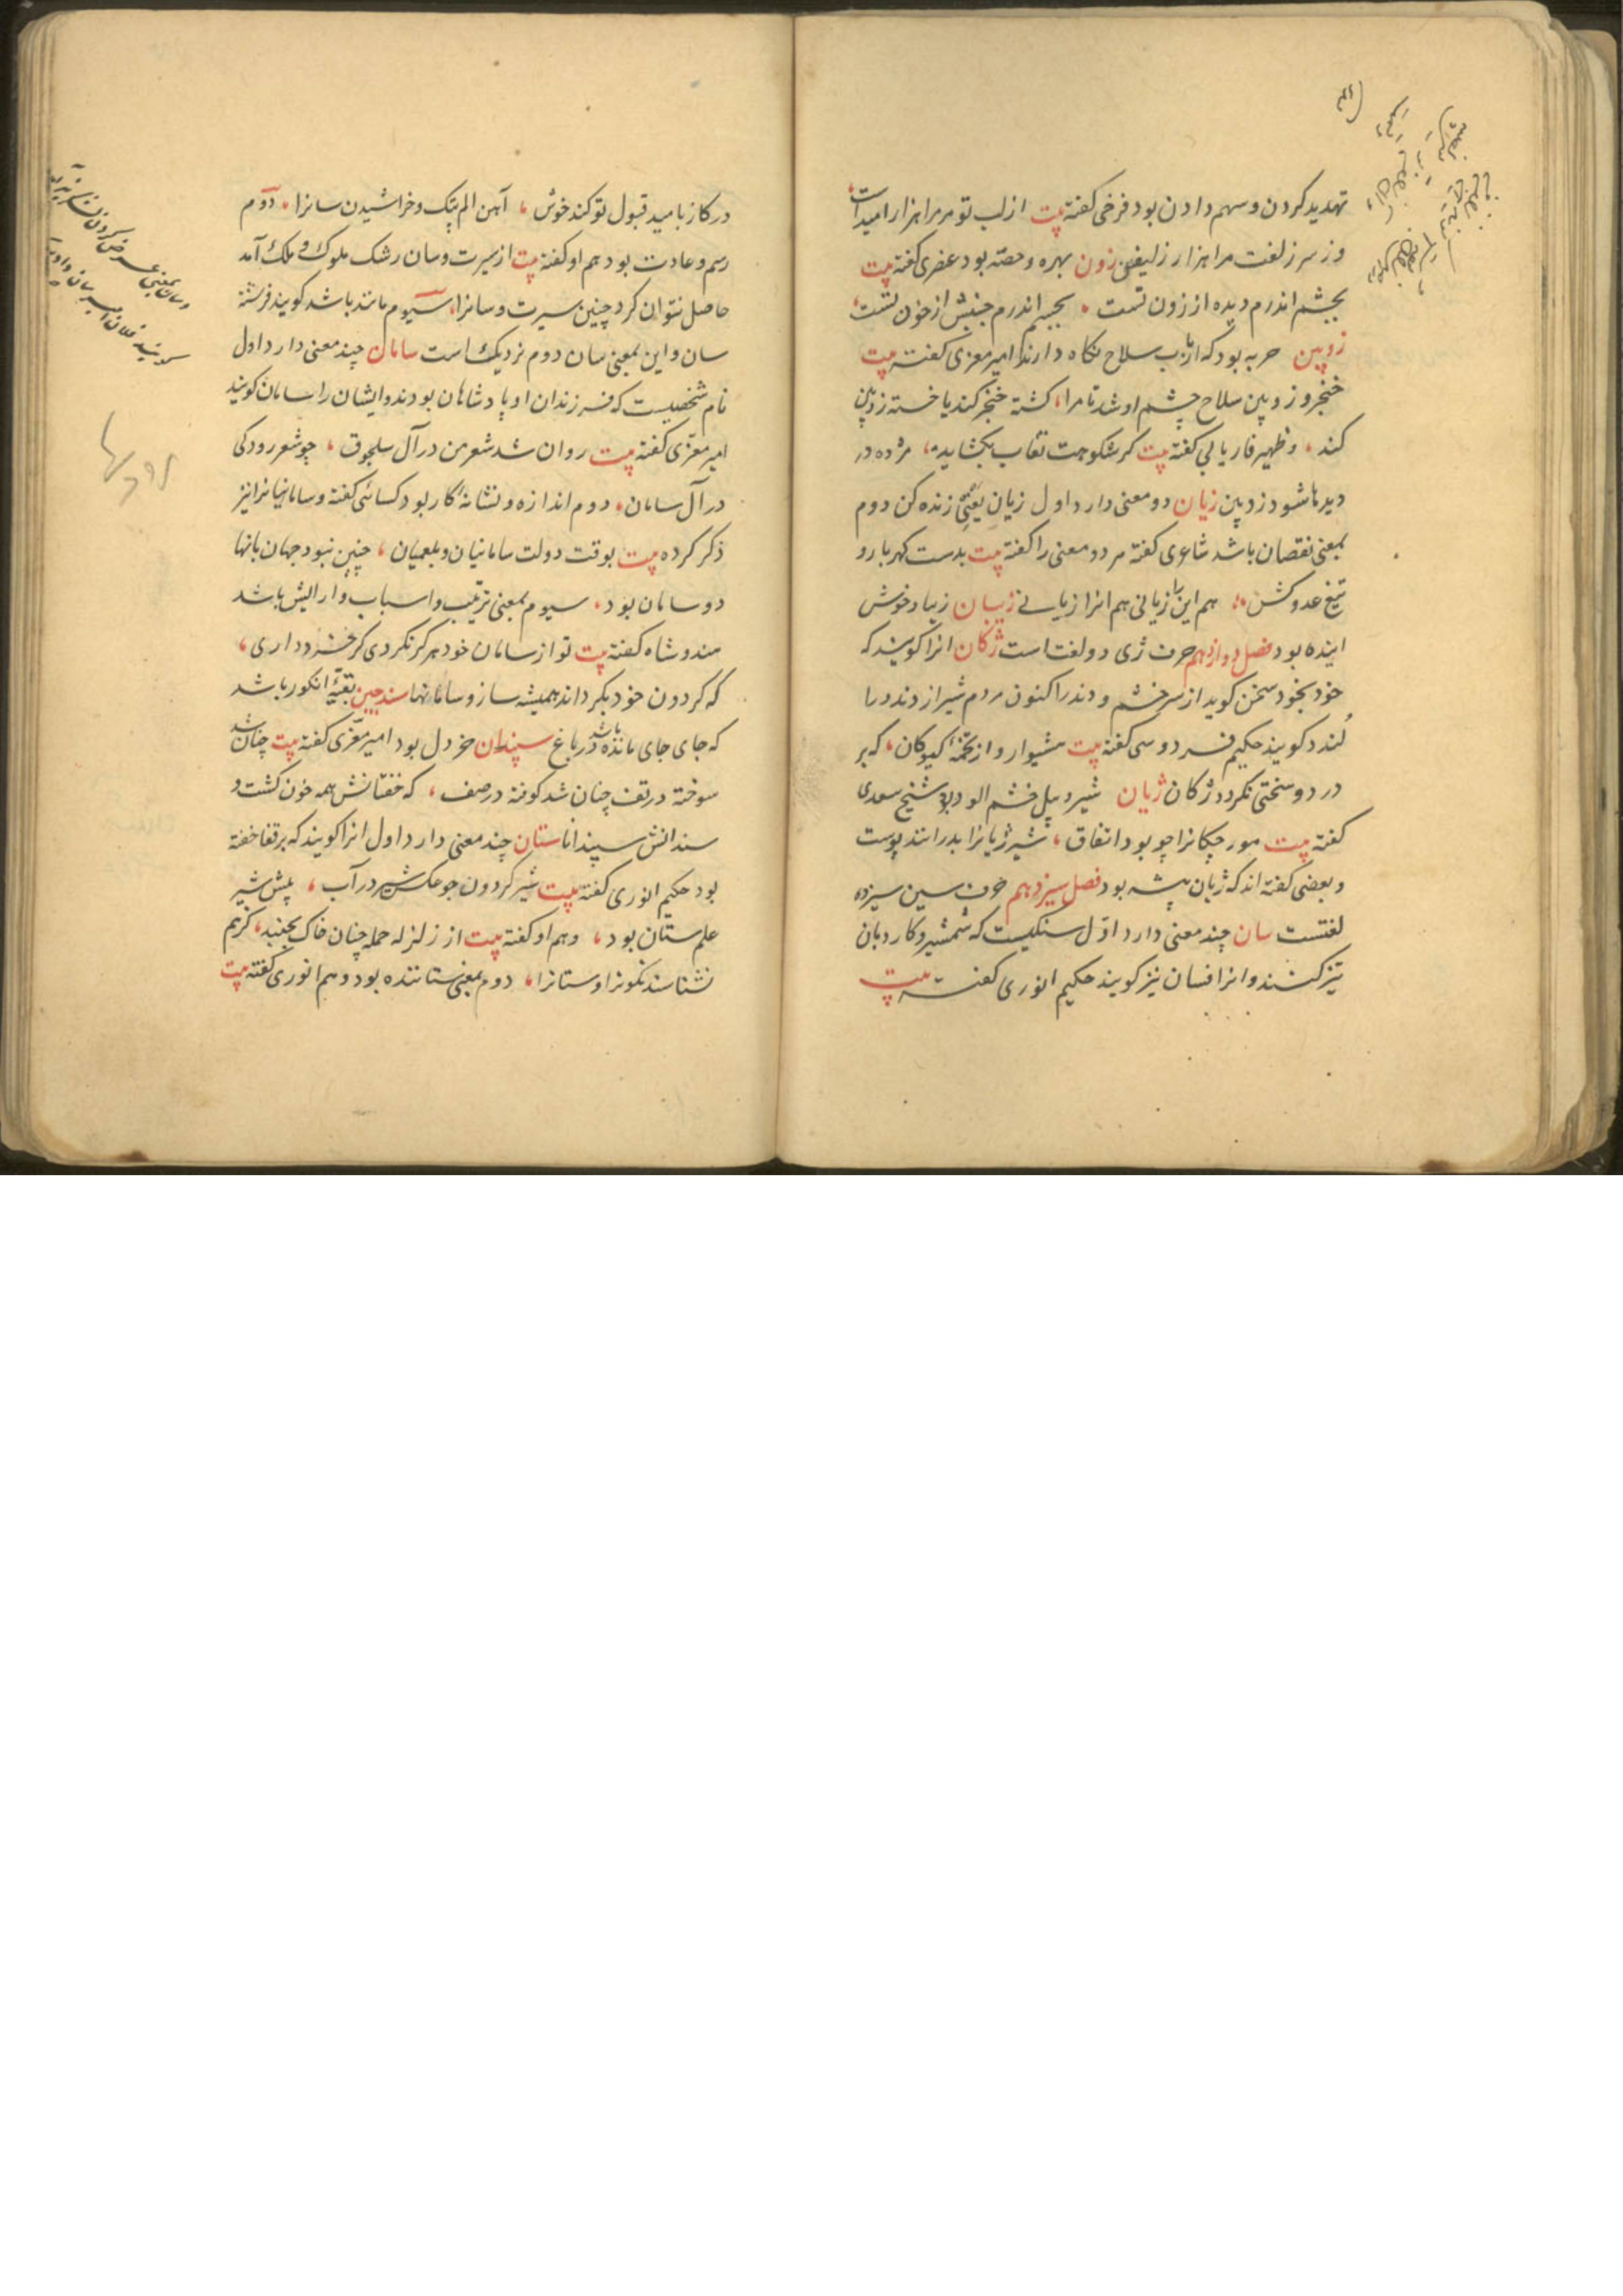 تهدید کردن و سهم دادن بود فرخی کفته پت از لب تو مر مرا هزار امیداست
وز سر زلفت مرا هزار زلیفن زون بهره و حصّه بود عنصری کفته پت
بچشم اندرم دیده از زون تست بجسم اندرم جنبش از خون تست
زوپین حربه بود که ارباب سلاح نکاه دارند امیر معزی کفته پت
خنجر و زوپین سلاح چشم او شد تا مرا کشته خنجر کند یا خسته زوپین
کند و ظهیر فاریابی کفته پت کر شکوهت نقاب بکشاید مژده در
دیدها شود زوپین زیان دو معنی دارد اول زیان یعنی زنده کن دوم
بمعنی نقصان باشد شاعری کفته هر دو معنی را کفته پت بدست کهربار و
تیغ عدو کش هم این را زیانی هم انرا زیانی زیبان زیبا و خوش
اینده بود فصل دوازدهم حرف ژی دو لغت است ژکان انرا کویند که
خود بخود سخن کوید از سر خشم و دندد اکنون مردم شیراز دندد را
لندد کویند حکیم فردوسی کفته پت هشیوار و از تخمه کیوکان که بر
درد و سختی نکردد ژکان ژیان شیر و پیل خشم الود بود شیخ سعدی
کفته پت مورچکانرا چو بود اتفاق شیر ژیانرا بدرانند پوست
و بعضی کفته اند که ژیان پیشه بود فصل سیزدهم حرف سین سیزده
لغتست سان چند معنی دارد اوّل سنکیست که شمشیر و کارد بان
تیز کنند و انرا فسان نیز کویند حکیم انوری کفته پت
در کاز بامید قبول تو کند خوش آهن الم پتک و خراشیدن سانرا دوم
رسم و عادت بود هم او کفته پت از سیرت و سان رشک ملوک و ملک آمد
حاصل نتوان کرد چنین سیرت و سانرا سیوم مانند باشد کویند فرشته
سان و این بمعنی سان دوم نزدیک است سامان چند معنی دارد اول
نام شخصیست که فرزندان او پادشاهان بودند و ایشان را سامان کویند
امیر معزّی کفته پت روان شد شعر من در آل سلجوق چو شعر رودکی
در آل سامان دوم اندازه و نشانه کار بود کسائی کفته و سامانیانرا نیز
ذکر کرده پت بوقت دولت سامانیان و بلعمیان چنین نبود جهان بانها
د و سامان بود سیوم بمعنی ترتیب و اسباب و ارایش باشد
هندوشاه کفته پت تو از سامان خود هرکز نکردی کر خرد داری
که کردون خود بکرداند همیشه ساز و سامانها سندچین بقیّه انکور باشد
که جای جای مانده باشد در باغ سپندان خردل بود امیر معزّی کفته پت چنان شد
سوخته در تف چنان شد کوفته در صف که خفتانش همه خون کشت و
سندانش سپندانا ستان چند معنی دارد اول انرا کویند که بر قفا خفته
بود حکیم انوری کفته پت شیر کردون چو عکس شیر در آب پیش شیر
علم ستان بود و هم او کفته پت از زلزله حمله چنان خاک بجنبد کز هم
نشناسند نکونرا و ستانرا دوم بمعنی ستاننده بود و هم انوری کفته پت